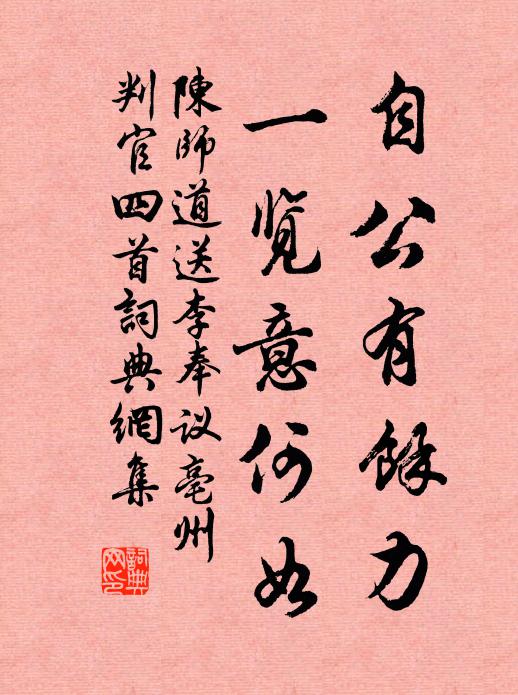 自公有餘力
一覽意何如
陳師道送李奉议亳州
判官四首詞典網集
詞典網印